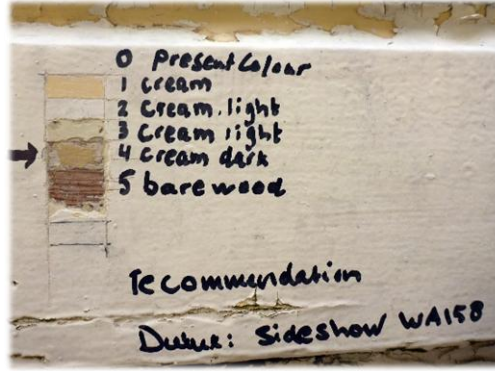 0 Present Colour
1 cream
2 cream light
3 cream light
4 cream dark
5 bare wood
recommendation
Dulux: Sideshow WA158